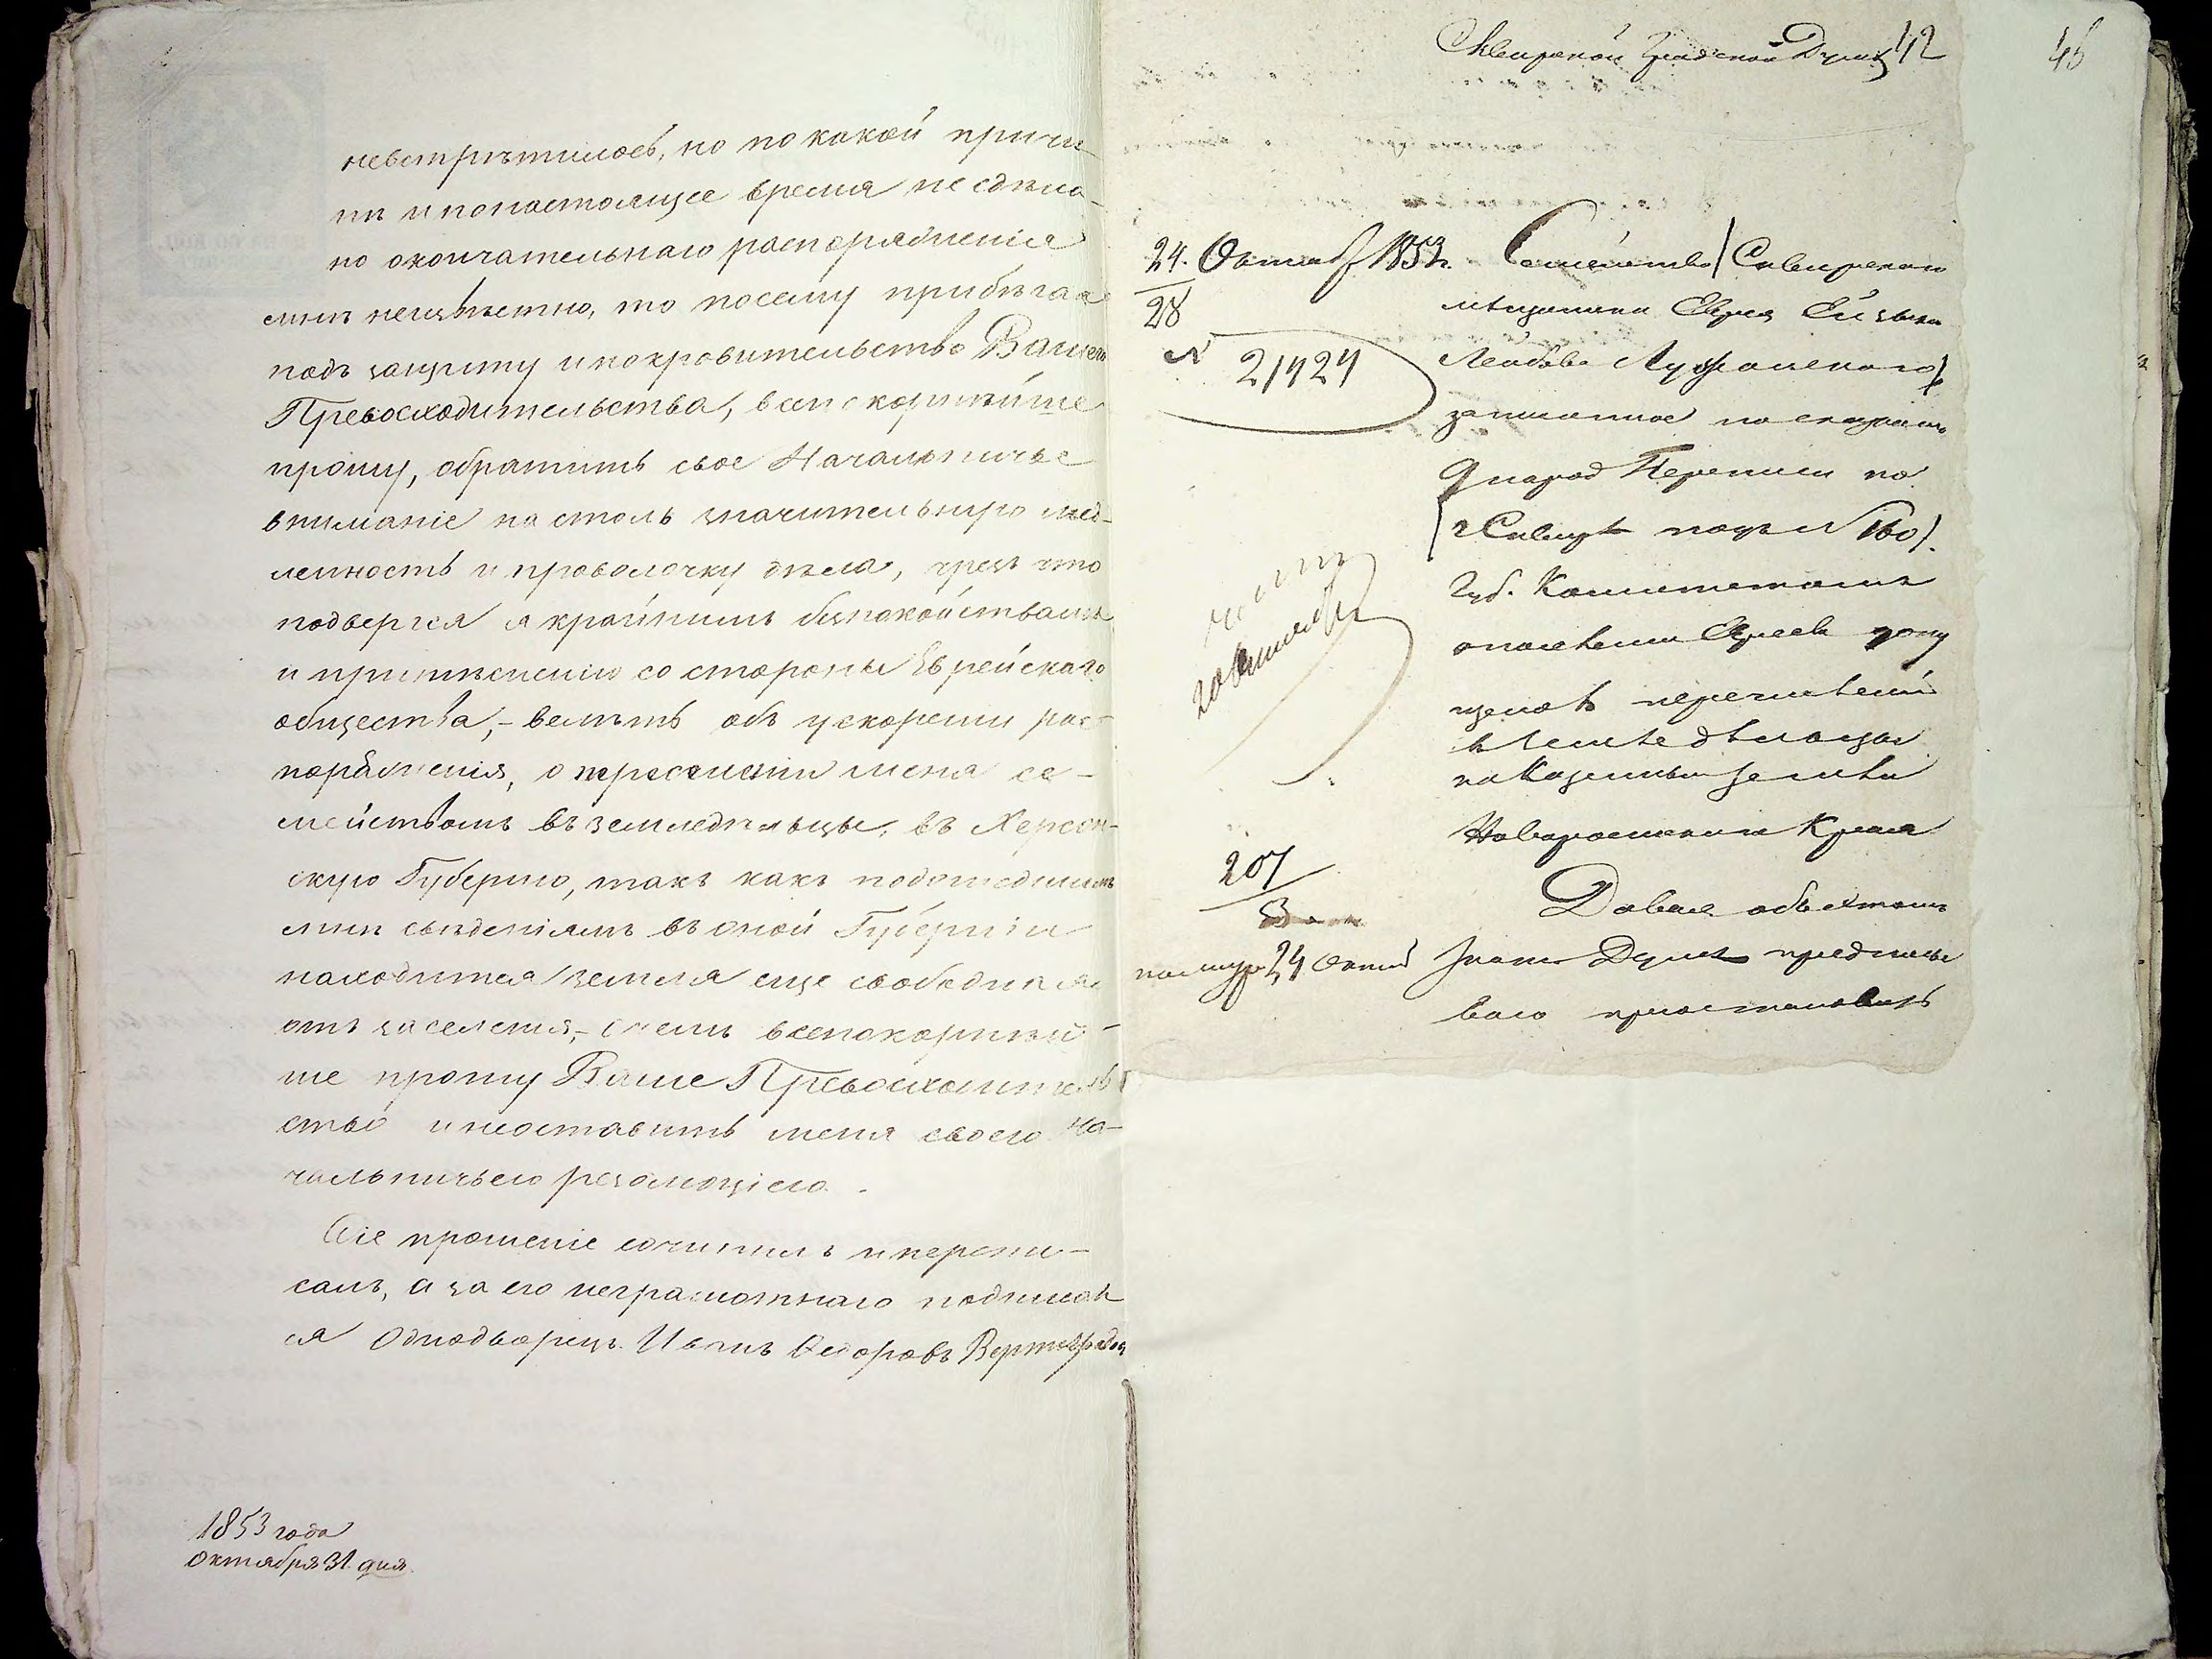 невстрѣтилось, но по какой причи-
нѣ и понастоящее время не сдѣла-
но окончательнаго распоряженія
мнѣ неизвѣстно, то посему прибѣгая
подъ защиту и покровительство Вашего
Превосходительства, всепокорнѣйше
прошу, обратить свое Начальничье
вниманіе на столь значительную мед-
ленность и проволочку дѣла, чрезъ что
подвергся я крайнимъ безпокойствамъ
и притѣсненію со стороны Еврейскаго
общества, - велѣть объ ускореніи рас-
поряженія, о переселеніи меня се-
мействомъ въ земледѣльцы, въ Херсон-
скую Губернію, такъ какъ подошедшимъ
мнѣ свѣденіямъ въ оной Губерніи
находится земля еще свободная
отъ заселенія, - О чемъ всепокорнѣй-
ше прошу Ваше Превосходитель-
ство и неоставить меня своею На-
чальничьею резолюціею.
Сіе прошеніе сочинилъ и перепи-
салъ, а за его неграмотнаго подписал
ся Однодворецъ Иванъ Федоровъ
1853 года
Октября 31 дня.
Сквирской Градской Думѣ 42
45
24. Октяб 1853 г.
28
N 21424
207
3
24 Октяб
Семейство / Сквирскаго
мѣщанина Еврея
Лейбова
записанное по
9 народ Переписи по
г Сквирѣ подъ N 160).
Губ. Комитетомъ
о поселеніи Евреевъ допу
щено къ перечисленію
въ Земледѣльцы
на Казенныя земли
Новороссійскаго Края
Давая объ этомъ
знать Думѣ предписы
ваю пріостановить